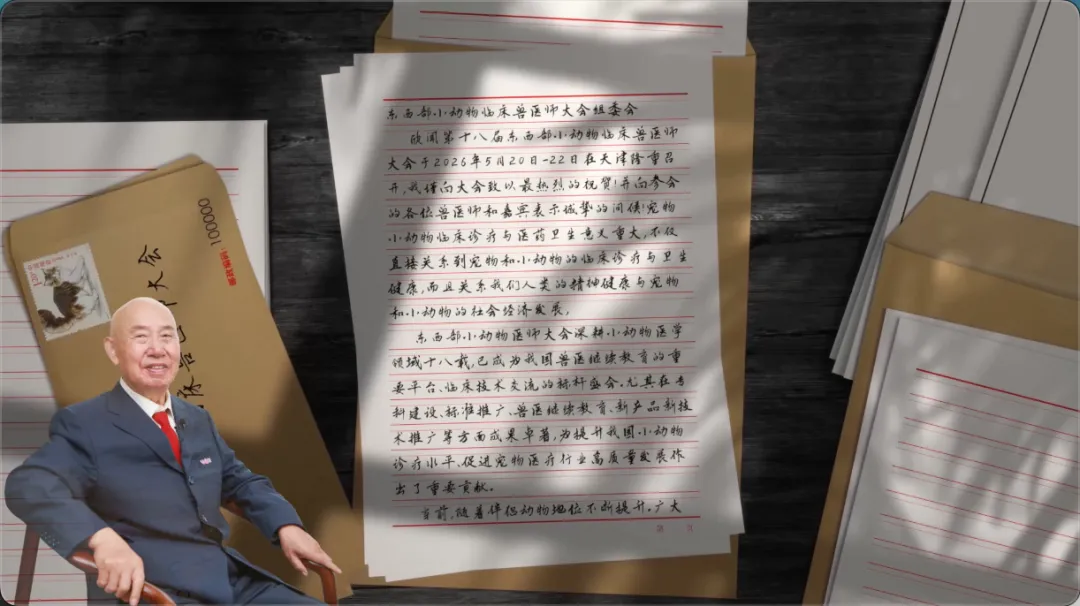 东西部小动物临床兽医师大会组委会
欣闻第十八届东西部小动物临床兽医师
大会于2026年5月20日-22日在天津隆重召
开,我谨向大会致以最热烈的祝贺!并向参会
的各位兽医师和嘉宾表示诚挚的问候!宠物
小动物临床诊疗与医药卫生意义重大,不仅
直接关系到宠物和小动物的临床诊疗与卫生
健康,而且关系我们人类的精神健康与宠物
和小动物的社会经济发展,
东西部小动物医师大会深耕小动物医学
领域十八载,已成为我国兽医继续教育的重
要平台、临床技术交流的标杆盛会。尤其在专
科建设、标准推广、兽医继续教育、新产品新技
术推广等方面成果卓著,为提升我国小动物
诊疗水平、促进宠物医疗行业高质量发展作
出了重要贡献。
当前,随着伴侣动物地位不断提升,广大
第 页
100000
邮政编码:
大会
120